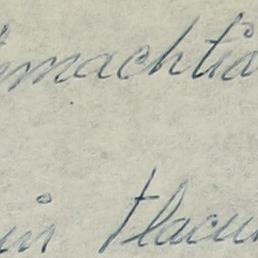 emachtia
in tlacu